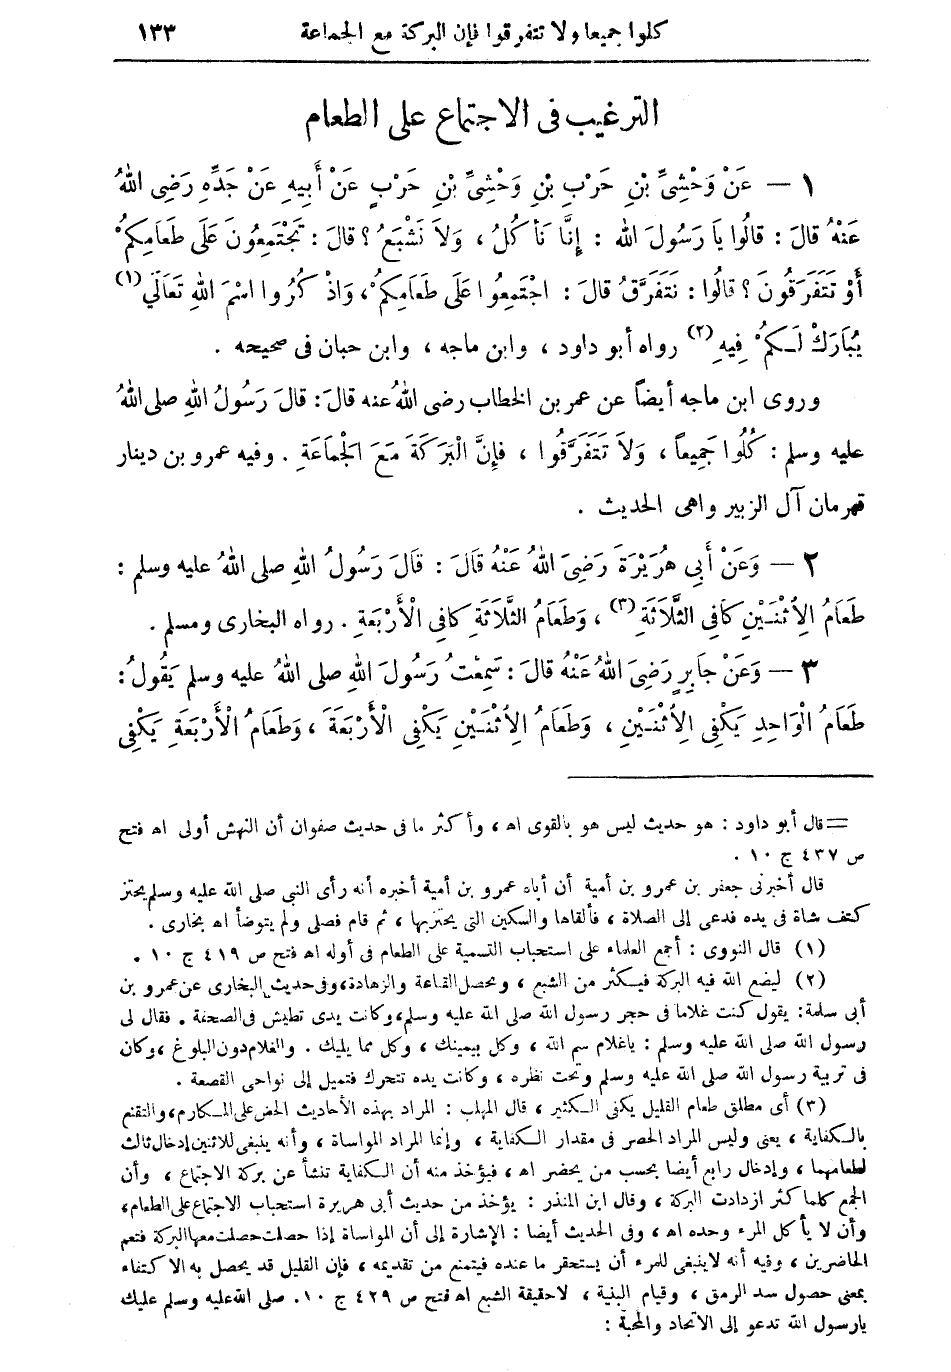 كلوا جميعا ولا تتفرقوا فإن البركة مع الجماعة ١٣٣
الترغيب فى الاجتماع على الطعام
١ — عَنْ وَحْشِىِّ بْنِ حَرْبِ بْنِ وَحْشِىِّ بْنِ حَرْبٍ عَنْ أَبِيهِ عَنْ جَدِّهِ رَضِىَ اللهُ
عَنْهُ قَالَ : قَالُوا يَا رَسُولَ الله : إِنَّا نَأْكُلُ ، وَلاَ نَشْبَعُ ؟ قالَ : تَجْتَمِعُونَ عَلَى طَعَامِكُمْ
أَوْ تَتَفَرَقُونَ ؟ قالُوا : نَتَفَرَّقُ قالَ : اجْتَمِعُوا عَلَى طَعَامِكُمْ ، وَاذْ كُرُوا اسْمَ اللهِ تَعَالَى (١)
يُبَارَكْ لَـكُمْ فِيهِ (٢) رواه أبو داود ، وابن ماجه ، وابن حبان فى صحيحه .
وروى ابن ماجه أيضاً عن عمر بن الخطاب رضى اللهُ عنه قالَ : قالَ رَسُولُ اللهِ صلى اللهُ
عليه وسلم : كُلُوا جَمِيعاً ، وَلاَ تَتَفَرَّقُوا ، فَإِنَّ الْبَرَكَةَ مَعَ الْجَمَاعَةِ . وفيه عمرو بن دينار
قهرمان آل الزبير واهى الحديث .
٢ — وَعَنْ أَبِي هُرَيْرَةَ رَضِىَ اللهُ عَنْهُ قَالَ : قَالَ رَسُولُ اللهِ صلى اللهُ عليه وسلم :
طَعَامُ الِاثْنَـيْنِ كَافِى الثَّلَاثَةِ (٣) ، وَطَعَامُ الثَّلَاثَةِ كَافِى الْأَرْبَعَةِ . رواه البخارى ومسلم .
٣ — وَعَنْ جَابِرٍ رَضِىَ اللهُ عَنْهُ قالَ : سَمِعْتُ رَسُولَ اللهِ صلى اللهُ عليه وسلم يَقُولُ :
طَعَامُ الْوَاحِدِ يَكْفِى الِاثْنَـيْنِ ، وَطَعَامُ الِاثْنَـيْنِ يَكْفِى الْأَرْبَعَةَ ، وَطَعَامُ الْأَرْبَعَةِ يَكْفِى
= قال أبو داود : هو حديث ليس هو بالقوى اه ، وأكثر ما فى حديث صفوان أن النهش أولى اه فتح
ص ٤٣٧ ج ١٠ .
قال أخبرنى جعفر بن عمرو بن أمية أن أباه عمرو بن أمية أخبره أنه رأى النبى صلى الله عليه وسلم يحتز
كتف شاة فى يده فدعى إلى الصلاة ، فألقاها والسكين التى يحتز بها ، ثم قام فصلى ولم يتوضأ اه بخارى .
(١) قال النووى : أجمع العلماء على استحباب التسمية على الطعام فى أوله اه فتح ص ٤١٩ ج ١٠ .
(٢) ليضع الله فيه البركة فيكثر من الشبع ، وتحصل القناعة والزهادة، وفى حديث البخارى عن عمرو بن
أبى سلمة: يقول كنت غلاما فى حجر رسول الله صلى الله عليه وسلم، وكانت يدى تطيش فى الصحفة . فقال لى
رسول الله صلى الله عليه وسلم : ياغلام سم الله ، وكل بيمينك ، وكل مما يليك . والغلام دون البلوغ ، وكان
فى تربية رسول الله صلى الله عليه وسلم وتحت نظره ، وكانت يده تتحرك فتميل إلى نواحى القصعة .
(٣) أى مطلق طعام القليل يكفى الـكثير ، قال المهلب : المراد بهذه الأحاديث الحض على المـكارم، والتقنع
بالـكفاية ، يعنى وليس المراد الحصر فى مقدار الـكفاية ، وإنما المراد المواساة ، وأنه ينبغى للاثنين إدخال ثالث
لطعامهما ، وإدخال رابع أيضا بحسب من يحضر اه ، فيؤخذ منه أن الـكفاية تنشأ عن بركة الاجتماع ، وأن
الجمع كلما كثر ازدادت البركة ، وقال ابن المنذر : يؤخذ من حديث أبى هريرة استحباب الاجتماع على الطعام،
وأن لا يأكل المرء وحده اه ، وفى الحديث أيضا : الإشارة إلى أن المواساة إذا حصلت حصلت معها البركة فتعم
الحاضرين ، وفيه أنه لاينبغى للمرء أن يستحقر ما عنده فيتمنع من تقديمه ، فإن القليل قد يحصل به الاكتفاء
بمعنى حصول سد الرمق ، وقيام البنية ، لاحقيقة الشبع اه فتح ص ٤٢٩ ج ١٠. صلى الله عليه وسلم عليك
يارسول الله تدعو إلى الاتحاد والمحبة :